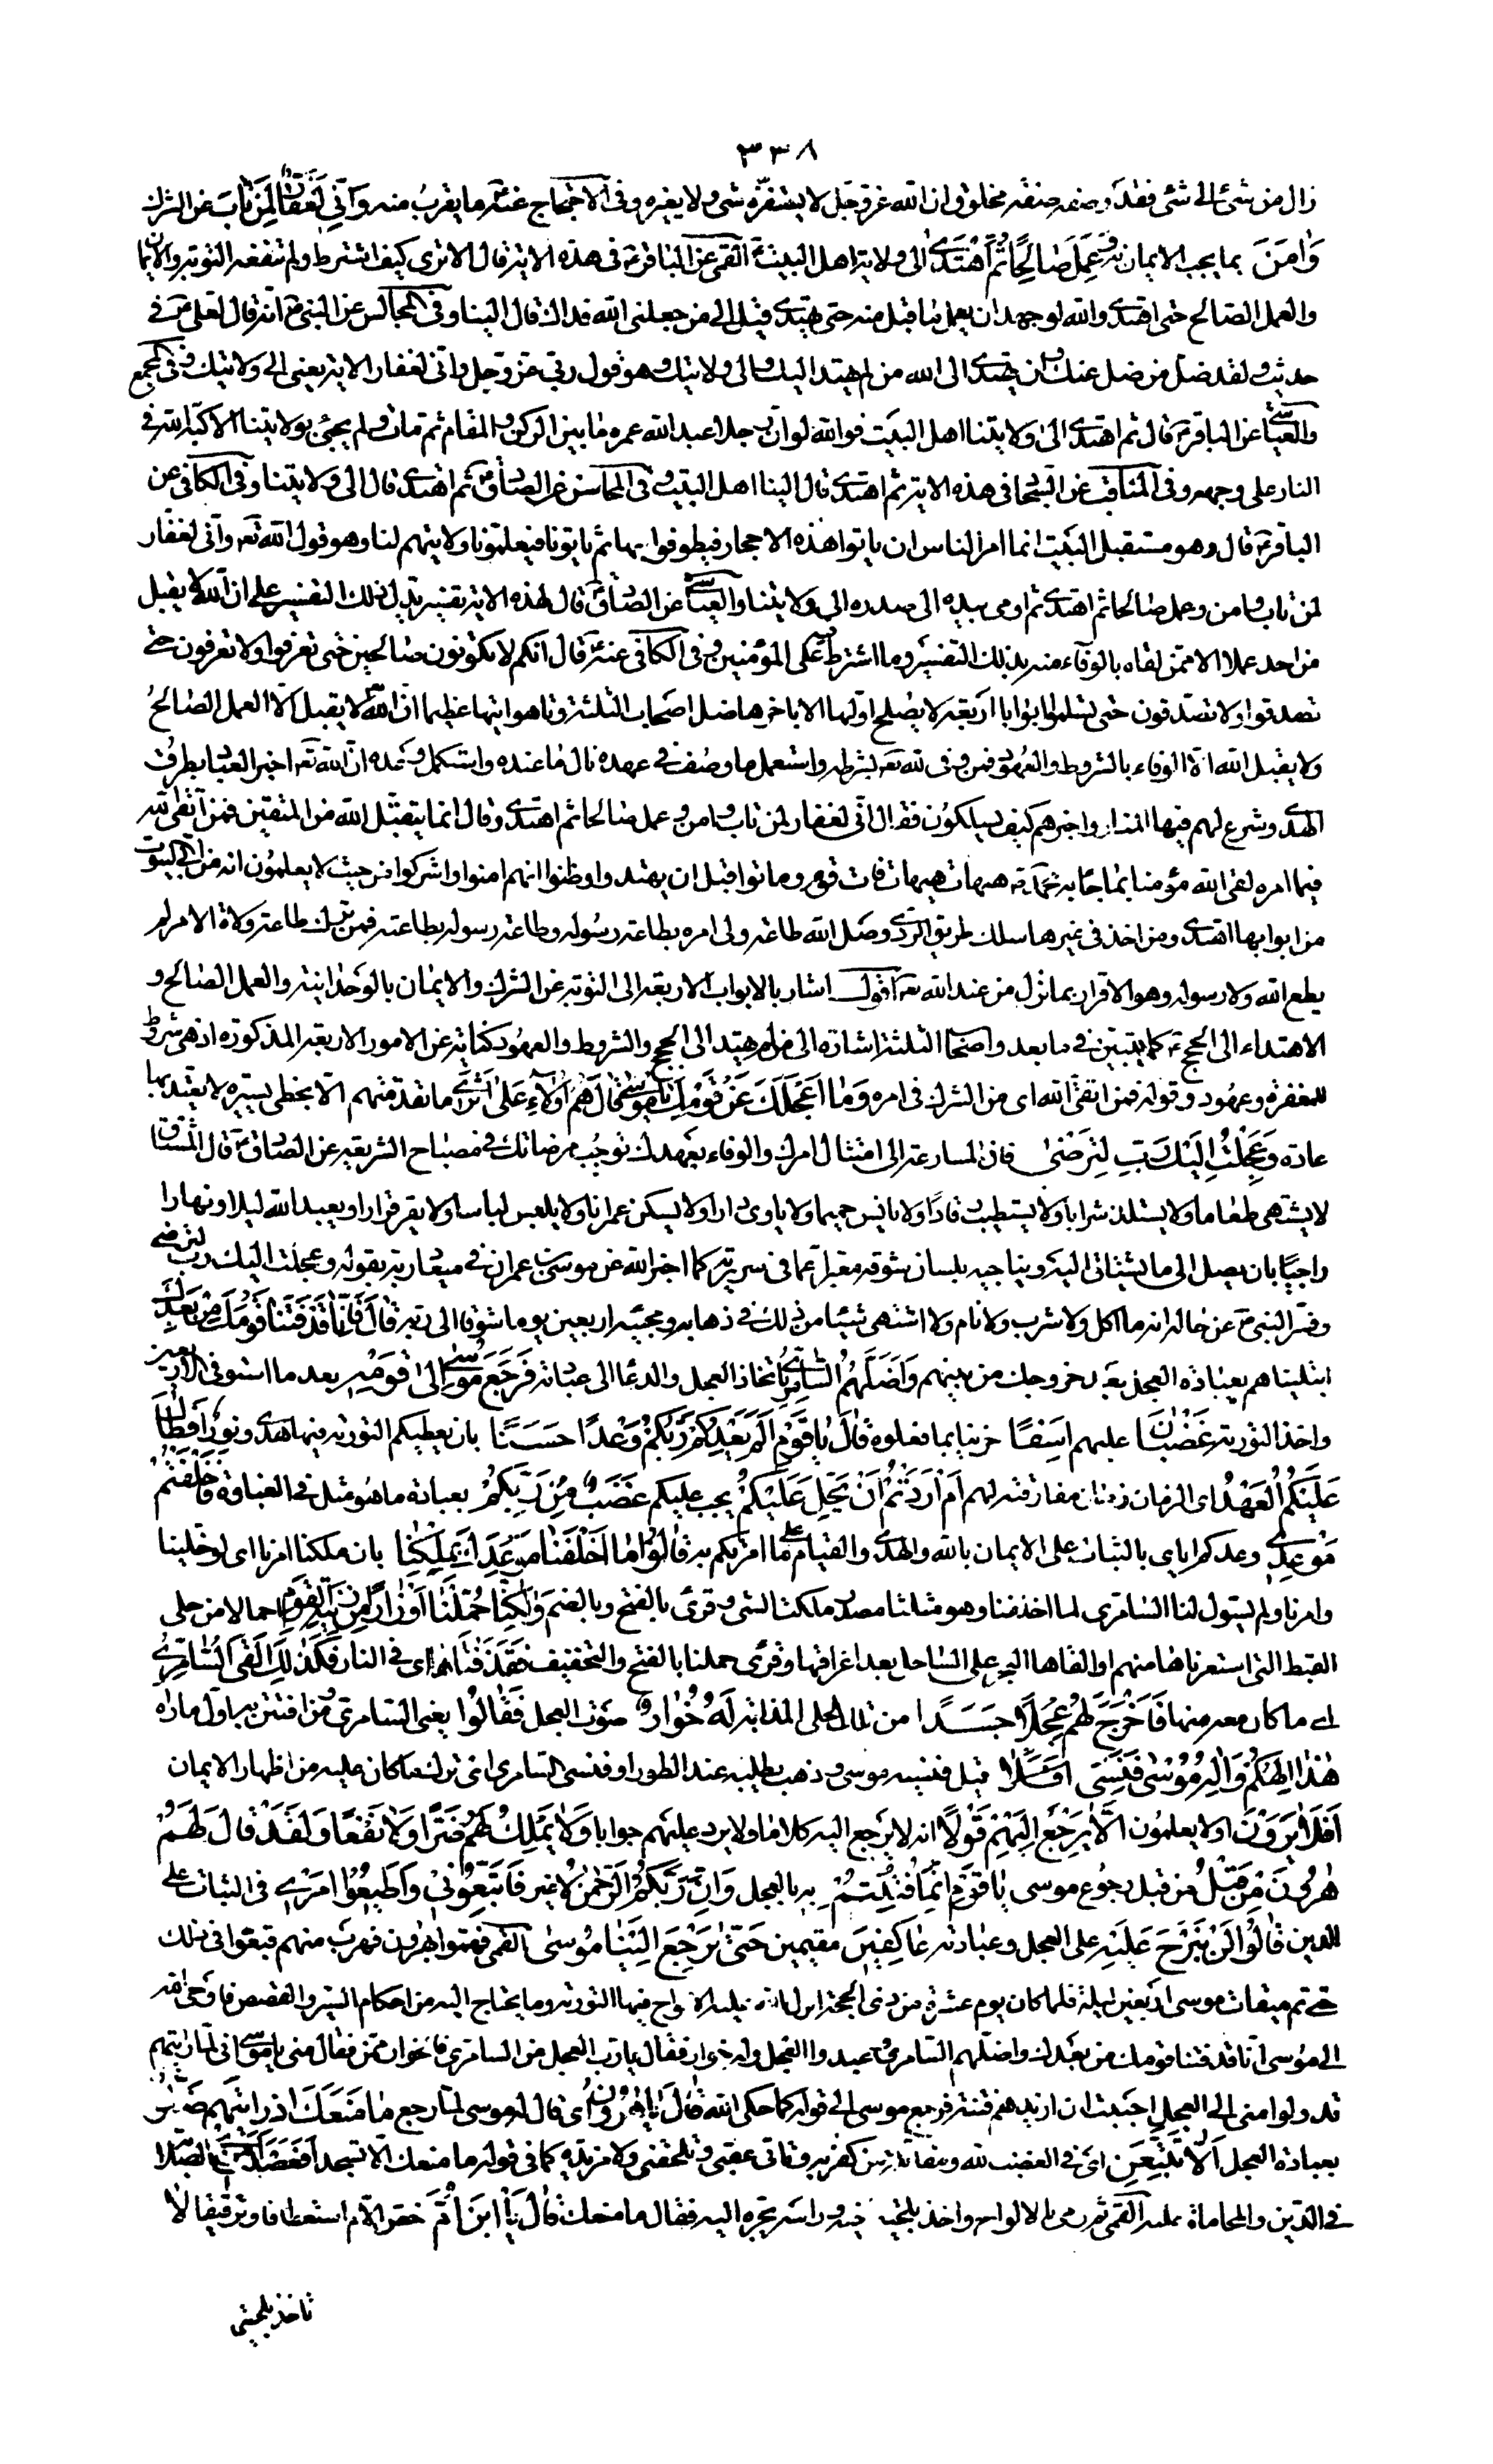 ٣٣٨
زال من شئ الى شئ فقد وصفه صفة مخلوق وان الله عز وجل لا يستفزه شئ ولا يغيره وفى الاحتجاج عنه ع ما يقرب منه وَاِنّى لَغَفّارٌ لِمَنْ تابَ عن الشرك
وَامَنَ بما يجب الايمان به وَعَمِلَ صالِحًا ثُمَّ اهْتَدى الى ولاية اهل البيت ع القمى عن الباقر ع فى هذه الاية قال الا ترى كيف اشترط ولم تنفعه التوبة والايمان
والعمل الصالح حتى اهتدى والله لو جهد ان يعمل ما قبل منه حتى يهتدى قيل الى من جعلنى الله فداك قال الينا وفى المجالس عن النبى ص انه قال لعلى ع فى
حديث ولقد ضل من ضل عنك ولن يهتدى الى الله من لم يهتد اليك والى ولايتك وهو قول ربى عز وجل وانى لغفار الاية يعنى الى ولايتك وفى المجمع
والعياشى عن الباقر ع قال ثم اهتدى الى ولايتنا اهل البيت فوالله لو ان رجلا عبد الله عمره ما بين الركن والمقام ثم مات ولم يجئ بولايتنا الا كبه الله فى
النار على وجهه وفى المناقب عن السجاد فى هذه الاية ثم اهتدى قال الينا اهل البيت وفى المحاسن عن الصادق ع ثم اهتدى قال الى ولايتنا وفى الكافى عن
الباقر ع قال وهو مستقبل البيت انما امر الناس ان ياتوا هذه الاحجار فيطوفوا بها ثم ياتونا فيعلمونا ولايتهم لنا وهو قول الله تعه وانى لغفار
لمن تاب وامن وعمل صالحا ثم اهتدى ثم اومى بيده الى صدره الى ولايتنا والعياشى عن الصادق ع قال لهذه الاية تفسير يدل ذلك التفسير على ان الله لا يقبل
من احد عملا الا ممن لقاه بالوفاء منه بذلك التفسير وما اشترط فيه على المؤمنين وفى الكافى عنه ع قال انكم لا تكونون صالحين حتى تعرفوا ولا تعرفون حتى
تصدقوا ولا تصدقون حتى تسلموا ابوابا اربعة لا يصلح اولها الا باخرها ضل اصحاب الثلثة وتاهوا تيها عظيما ان الله لا يقبل الا العمل الصالح
ولا يقبل الله الا الوفاء بالشروط والعهود فمن وفى لله تعه بشرطه واستعمل ما وصف فى عهده نال ما عنده واستكمل وعده ان الله تعه اخبر العباد بطرق
الهدى وشرع لهم فيها المنار واخبرهم كيف يسلكون فقال انى لغفار لمن تاب وامن وعمل صالحا ثم اهتدى وقال انما يتقبل الله من المتقين فمن اتقى الله
فيما امره لقى الله مؤمنا بما جاء به محمد ص هيهات هيهات فات قوم وماتوا قبل ان يهتدوا وظنوا انهم امنوا واشركوا من حيث لا يعلمون انه من اتى البيوت
من ابوابها اهتدى ومن اخذ فى غيرها سلك طريق الردى وصل الله طاعة ولى امره بطاعة رسوله وطاعة رسوله بطاعته فمن ترك طاعة ولاة الامر لم
يطع الله ولا رسوله وهو الاقرار بما نزل من عند الله تعه اقول اشار بالابواب الاربعة الى التوبة عن الشرك والايمان بالوحدانية والعمل الصالح و
الاهتداء الى الحجج ع كما يتبين فى ما بعد واصحاب الثلثة اشارة الى من لم يهتد الى الحجج والشروط والعهود كناية عن الامور الاربعة المذكورة اذ هى شروط
للمغفرة وعهود وقوله فمن اتقى الله اى من الشرك فى امره وَما اَعْجَلَكَ عَنْ قَوْمِكَ يا مُوسى قالَ هُمْ اُولاءِ عَلى اَثَرى ما تقدمتهم الا بخطى يسيرة لا يعتد بها
عادة وَعَجِلْتُ اِلَيْكَ رَبِّ لِتَرْضى فان المسارعة الى امتثال امرك والوفاء بعهدك توجب مرضاتك فى مصباح الشريعة عن الصادق ع قال المشتاق
لا يشتهى طعاما ولا يستلذ شرابا ولا يستطيب رقادا ولا يانس حميما ولا ياوى دارا ولا يسكن عمرانا ولا يلبس لباسا ولا يقر قرارا ويعبد الله ليلا ونهارا
راجيا بان يصل الى ما يشتاق اليه ويناجيه بلسان شوقه معبرا عما فى سريرته كما اخبر الله عن موسى بن عمران فى ميعاد ربه بقوله وعجلت اليك رب لترضى
وفسر النبى ص عن حاله انه ما اكل ولا شرب ولا نام ولا اشتهى شيئا من ذلك فى ذهابه ومجيئه اربعين يوما شوقا الى ربه قالَ فَاِنّا قَدْ فَتَنّا قَوْمَكَ مِنْ بَعْدِكَ
ابتليناهم بعبادة العجل بعد خروجك من بينهم وَاَضَلَّهُمُ السّامِرِىُّ باتخاذ العجل والدعاء الى عبادته فَرَجَعَ مُوسى اِلى قَوْمِه بعد ما استوفى الاربعين
واخذ التورية غَضْبانَ عليهم اَسِفًا حزينا بما فعلوه قالَ يا قَوْمِ اَلَمْ يَعِدْكُمْ رَبُّكُمْ وَعْدًا حَسَنًا بان يعطيكم التورية فيها هدى ونور اَفَطالَ
عَلَيْكُمُ الْعَهْدُ اى الزمان زمان مفارقته لهم اَمْ اَرَدْتُمْ اَنْ يَحِلَّ عَلَيْكُمْ يجب عليكم غَضَبٌ مِنْ رَبِّكُمْ بعبادة ما هو مثل فى الغباوة فَاَخْلَفْتُمْ
مَوْعِدى وعدكم اياى بالثبات على الايمان بالله والهدى والقيام على ما امرتكم به قالُوا ما اَخْلَفْنا مَوْعِدَكَ بِمَلْكِنا بان ملكنا امرنا اى لو خلينا
وامرنا ولم يسول لنا السامرى لما اخلفناه وهو مثلثا مصدر ملكت الشئ وقرئ بالفتح وبالضم وَلكِنّا حُمِّلْنا اَوْزارًا مِنْ زينَةِ الْقَوْمِ احمالا من حلى
القبط التى استعرناها منهم او القاها البحر على الساحل بعد اغراقها وقرئ حملنا بالفتح والتخفيف فَقَذَفْناها اى فى النار فَكَذلِكَ اَلْقَى السّامِرِىُّ
اى ما كان معه منها فَاَخْرَجَ لَهُمْ عِجْلًا جَسَدًا من تلك الحلى المذابة لَهُ خُوارٌ صوت العجل فَقالُوا يعنى السامرى ومن افتتن به اول ما راه
هذا اِلهُكُمْ وَاِلهُ مُوسى فَنَسِىَ قيل فنسيه موسى وذهب يطلبه عند الطور او فنسى السامرى اى ترك ما كان عليه من اظهار الايمان
اَفَلا يَرَوْنَ اولا يعلمون اَلّا يَرْجِعُ اِلَيْهِمْ قَوْلًا انه لا يرجع اليه كلاما ولا يرد عليهم جوابا وَلا يَمْلِكُ لَهُمْ ضَرًّا وَلا نَفْعًا وَلَقَدْ قالَ لَهُمْ
هرُونُ مِنْ قَبْلُ من قبل رجوع موسى يا قَوْمِ اِنَّما فُتِنْتُمْ بِه بالعجل وَاِنَّ رَبَّكُمُ الرَّحْمنُ لا غير فَاتَّبِعُونى وَاَطيعُوا اَمْرى فى الثبات على
الدين قالُوا لَنْ نَبْرَحَ عَلَيْهِ على العجل وعبادته عاكِفينَ مقيمين حَتّى يَرْجِعَ اِلَيْنا مُوسى القمى فهموا بهرون فهرب منهم فبقوا فى ذلك
حتى تم ميقات موسى اربعين ليلة فلما كان يوم عشرة من ذى الحجة انزل الله عليه الالواح فيها التورية وما يحتاج اليه من احكام السير والقصص فاوحى الله
الى موسى انا قد فتنا قومك من بعدك واضلهم السامرى وعبدوا العجل وله خوار فقال يا رب العجل من السامرى فالخوار ممن فقال منى يا موسى انى لما رايتهم
قد ولوا عنى الى العجل احببت ان ازيدهم فتنة فرجع موسى الى قومه كما حكى الله قالَ يا هرُونُ اى قال له موسى لما رجع ما مَنَعَكَ اِذْ رَاَيْتَهُمْ ضَلُّوا
بعبادة العجل اَلّا تَتَّبِعَنِ اى فى الغضب لله ومقاتلة من كفر به وتاتى عقبى وتلحقنى ولا مزيدة كما فى قوله ما منعك الا تسجد اَفَعَصَيْتَ اَمْرى بالصلابة
فى الدين والمحاماة عليه القمى ثم رمى بالالواح واخذ بلحية اخيه وراسه يجره اليه فقال ما منعك قالَ يَا ابْنَ اُمَّ خص الام استعطافا وترقيقا لا
تاخذ بلحيتى